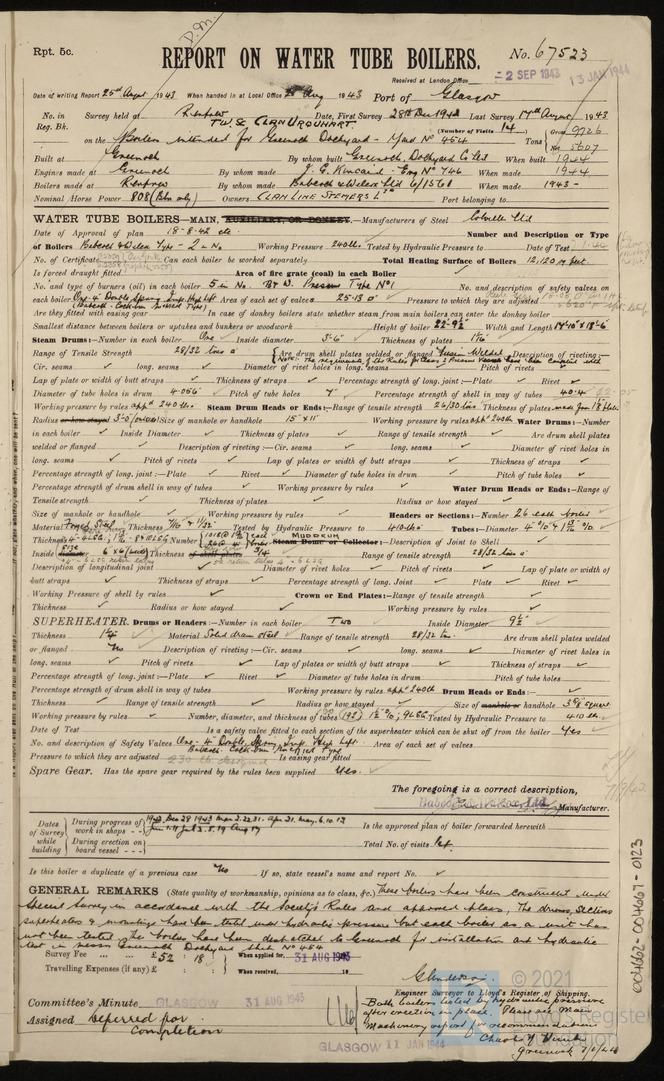 Rpt. 5c.
REPORT ON WATER TUBE BOILERS.
No. 67523
Received at London Office
2 SEP 1943 13 JAN 1944
Date of writing Report 25th August 1943 When handed in at Local Office Aug 1943 Port of Glasgow
No. in Survey held at Renfrew Date, First Survey 28th Dec 1942 Last Survey 17th August 1943
Reg. Bk. (Number of Visits 14)
T.W.S.S. CLAN URQUHART
on the Boilers intended for Greenock Dockyard - Yard No 454 Tons Gross 9726 Net 5607
Built at Greenock By whom built Greenock Dockyard Co Ltd When built 1944
Engines made at Greenock By whom made J. G. Kincaid - Eng No 746 When made 1944
Boilers made at Renfrew By whom made Babcock & Wilcox Ltd 6/1560 When made 1943 -
Nominal Horse Power 808 Owners CLAN LINE STEAMERS Ltd Port belonging to
WATER TUBE BOILERS—MAIN, AUXILIARY, OR DONKEY.—Manufacturers of Steel Colville Ltd
Date of Approval of plan 18-8-42 etc. Number and Description or Type
of Boilers Babcock & Wilcox Type - 2 in No Working Pressure 240 lbs. Tested by Hydraulic Pressure to Date of Test
No. of Certificate Can each boiler be worked separately Total Heating Surface of Boilers 12,120 sq feet.
Is forced draught fitted Area of fire grate (coal) in each Boiler
No. and type of burners (oil) in each boiler 5 in No. B & W. Pressure Type No 1 No. and description of safety valves on
each boiler One 4" Double Spring Imp. High Lift Area of each set of valves 25.13 □" Pressure to which they are adjusted
Are they fitted with easing gear In case of donkey boilers state whether steam from main boilers can enter the donkey boiler
Smallest distance between boilers or uptakes and bunkers or woodwork Height of boiler 22'-9½" Width and Length 14'-10" x 18'-6"
Steam Drums:—Number in each boiler One Inside diameter 3'-6" Thickness of plates 1 5/16
Range of Tensile Strength 28/32 tons Are drum shell plates welded or flanged Fusion Welded Description of riveting:—
Cir. seams long. seams Diameter of rivet holes in long. seams Pitch of rivets
Lap of plate or width of butt straps Thickness of straps Percentage strength of long. joint:—Plate Rivet
Diameter of tubes holes in drum 4.056 Pitch of tube holes 7" Percentage strength of shell in way of tubes 40.4
Working pressure by rules 240 lbs. Steam Drum Heads or Ends:—Range of tensile strength 26/30 tons Thickness of plates
Radius or how stayed Size of manhole or handhole 15" x 11" Working pressure by rules 240 lbs Water Drums:—Number
in each boiler Inside Diameter Thickness of plates Range of tensile strength Are drum shell plates
welded or flanged Description of riveting:—Cir. seams long. seams Diameter of rivet holes in
long. seams Pitch of rivets Lap of plates or width of butt straps Thickness of straps
Percentage strength of long. joint:—Plate Rivet Diameter of tube holes in drum Pitch of tube holes
Percentage strength of drum shell in way of tubes Working pressure by rules Water Drum Heads or Ends:—Range of
Tensile strength Thickness of plates Radius or how stayed
Size of manhole or handhole Working pressure by rules Headers or Sections:—Number 26 each boiler
Material Forged Steel Thickness Tested by Hydraulic Pressure to 410 lbs Tubes:—Diameter
Thickness Number MUD DRUM Steam Dome or Collector:—Description of Joint to Shell
Inside size 6 x 6 Thickness of shell plates 3/4 Range of tensile strength 28/32 tons
Description of longitudinal joint Diameter of rivet holes Pitch of rivets Lap of plate or width of
butt straps Thickness of straps Percentage strength of long. Joint Plate Rivet
Working Pressure of shell by rules Crown or End Plates:—Range of tensile strength
Thickness Radius or how stayed Working pressure by rules
SUPERHEATER. Drums or Headers:—Number in each boiler Two Inside Diameter 9½"
Thickness Material Solid drawn steel Range of tensile strength 28/32 tons Are drum shell plates welded
or flanged No Description of riveting:—Cir. seams long. seams Diameter of rivet holes in
long. seams Pitch of rivets Lap of plate or width of butt straps Thickness of straps
Percentage strength of long. joint:—Plate Rivet Diameter of tube holes in drum Pitch of tube holes
Percentage strength of drum shell in way of tubes Working pressure by rules 240 lb Drum Heads or Ends:—
Thickness Range of tensile strength Radius or how stayed Size of manhole or handhole 3⅝ square
Working pressure by rules Number, diameter, and thickness of tubes Tested by Hydraulic Pressure to 410 lbs.
Date of Test Is a safety valve fitted to each section of the superheater which can be shut off from the boiler Yes
No. and description of Safety Valves One - 4" Double Spring Imp. High Lift Area of each set of valves
Pressure to which they are adjusted Is easing gear fitted
Spare Gear. Has the spare gear required by the rules been supplied Yes.
The foregoing is a correct description,
Manufacturer.
Dates of Survey while building
During progress of work in shops - -
During erection on board vessel - - -
Is the approved plan of boiler forwarded herewith
Total No. of visits
Is this boiler a duplicate of a previous case No If so, state vessel's name and report No.
GENERAL REMARKS (State quality of workmanship, opinions as to class, &c.) These boilers have been constructed under
Special Survey in accordance with the Society's Rules and approved plans, The drums, sections
superheaters & mountings have been tested under hydraulic pressure but each boiler as a unit has
not been tested. The boilers have been despatched to Greenock for installation and hydraulic
test in Messrs Greenock Dockyard Ship No 454
Survey Fee £52 : 18 : When applied for, 31 AUG 1943
Travelling Expenses (if any) £ : : When received, 19
Engineer Surveyor to Lloyd's Register of Shipping.
Both boilers tested by hydraulic pressure
after erection in place. Please see Main
Machinery report for recommendation
Committee's Minute GLASGOW 31 AUG 1943
Assigned Deferred for
completion
GLASGOW 11 JAN 1944
© 2021
Lloyd's Register
Foundation
004662-004667-0123